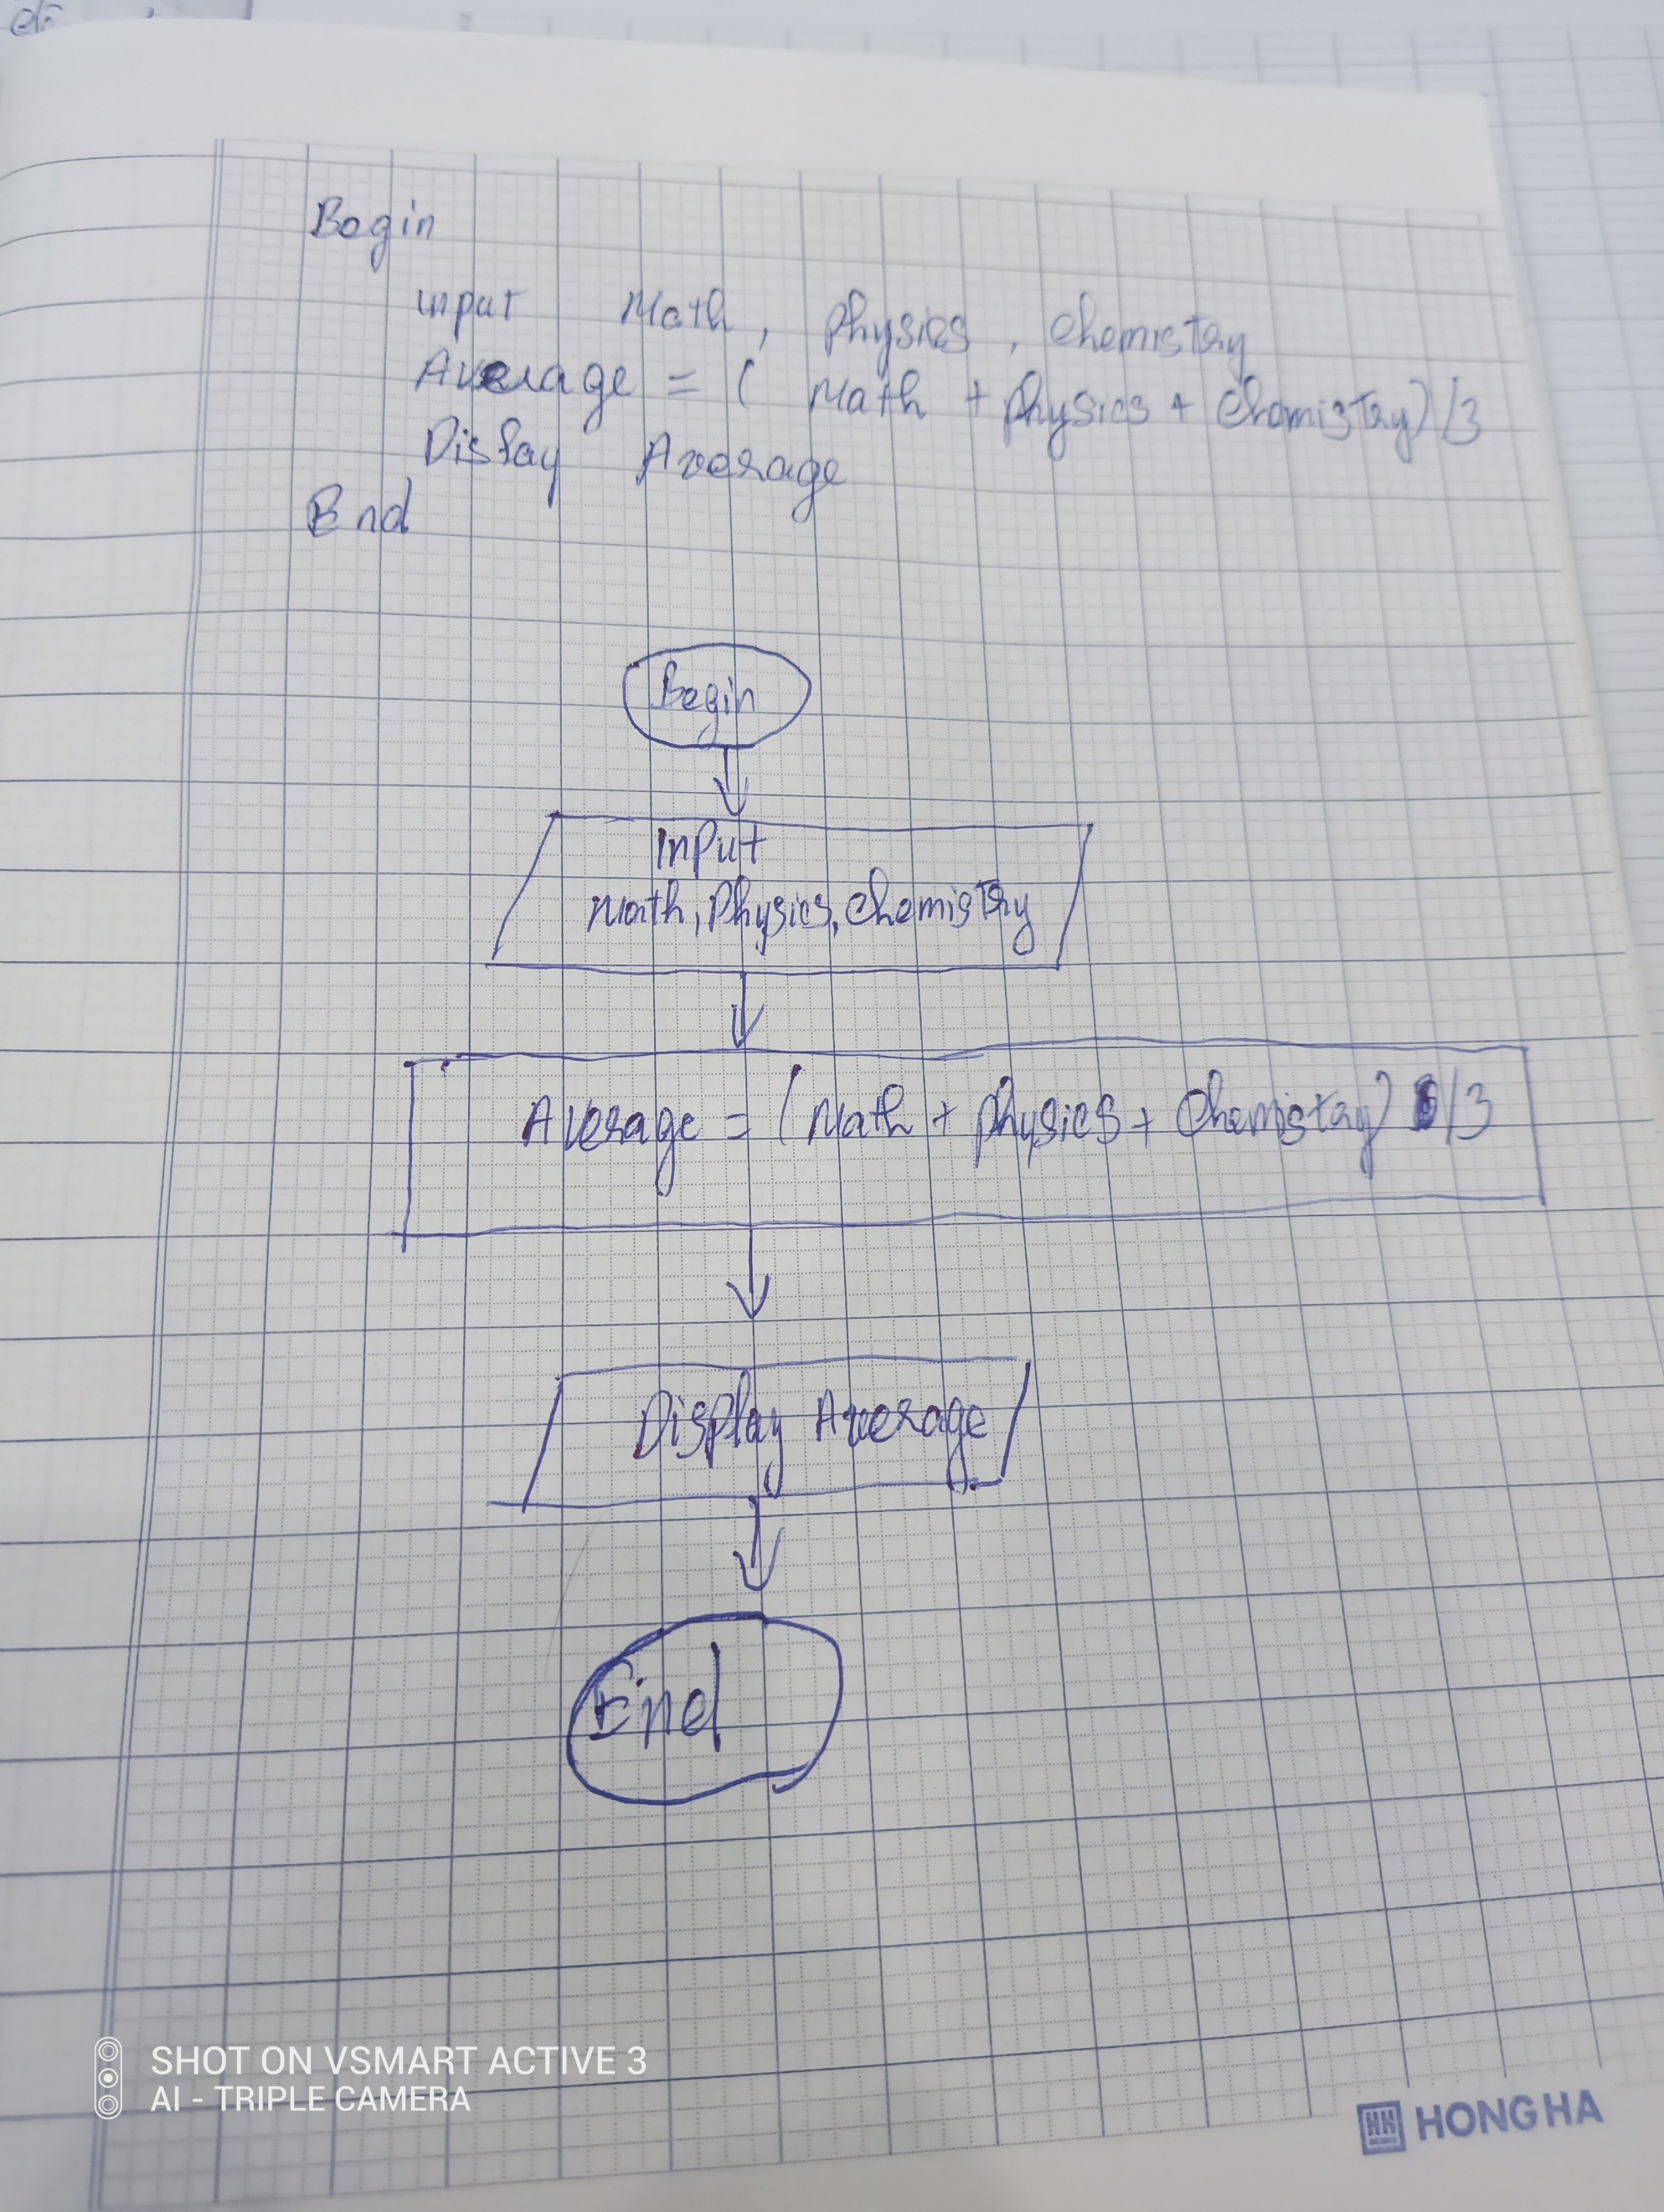 Begin
input Math, Physics, chemistry
Average = ( Math + physics + chemistry) /3
Display Average
End
Begin
Input
Math, Physics, chemistry
Average = (Math + physics + chemistry) /3
Display Average
End
SHOT ON VSMART ACTIVE 3
AI - TRIPLE CAMERA
HONG HA